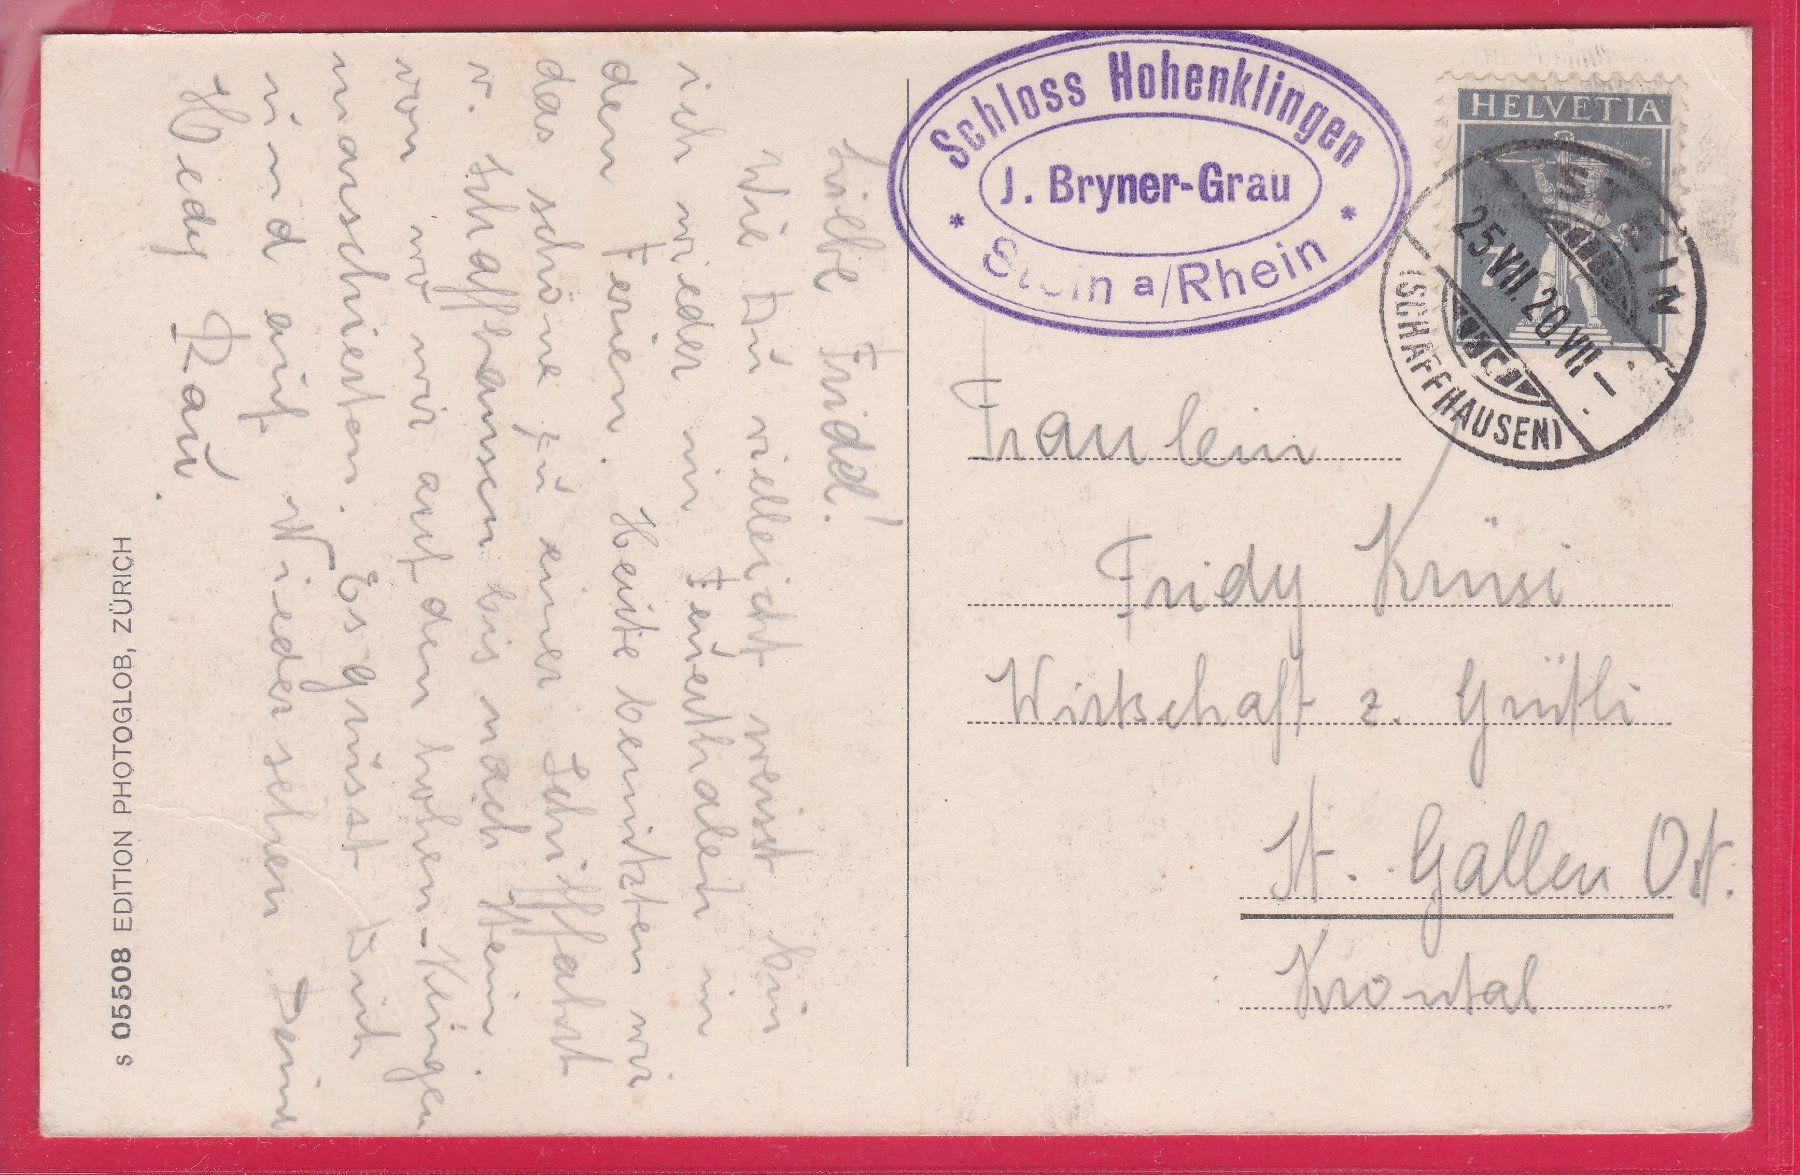 Liebe Fridd!
Wie Du vielleicht weisst bin
ich wieder in Feuerthalen in
den Ferien. Heute benutzten wir
das schöne zu einer Schiffahrt
v. Schaffhausen bis nach Stein.
von wo wir auf den hohen-Klingen
marschierten. Es grüsst Dich
und auf Wiedersehen Deine
Hedy Rau.
s 05508 EDITION PHOTOGLOB, ZÜRICH
Schloss Hohenklingen
J. Bryner-Grau
* Stein a/Rhein *
HELVETIA
STEIN
25.VII.20.VII–
(SCHAFFHAUSEN)
Fräulein
Fridy Krüsi
Wirtschaft z. Grütli
St. Gallen Ost.
Krontal